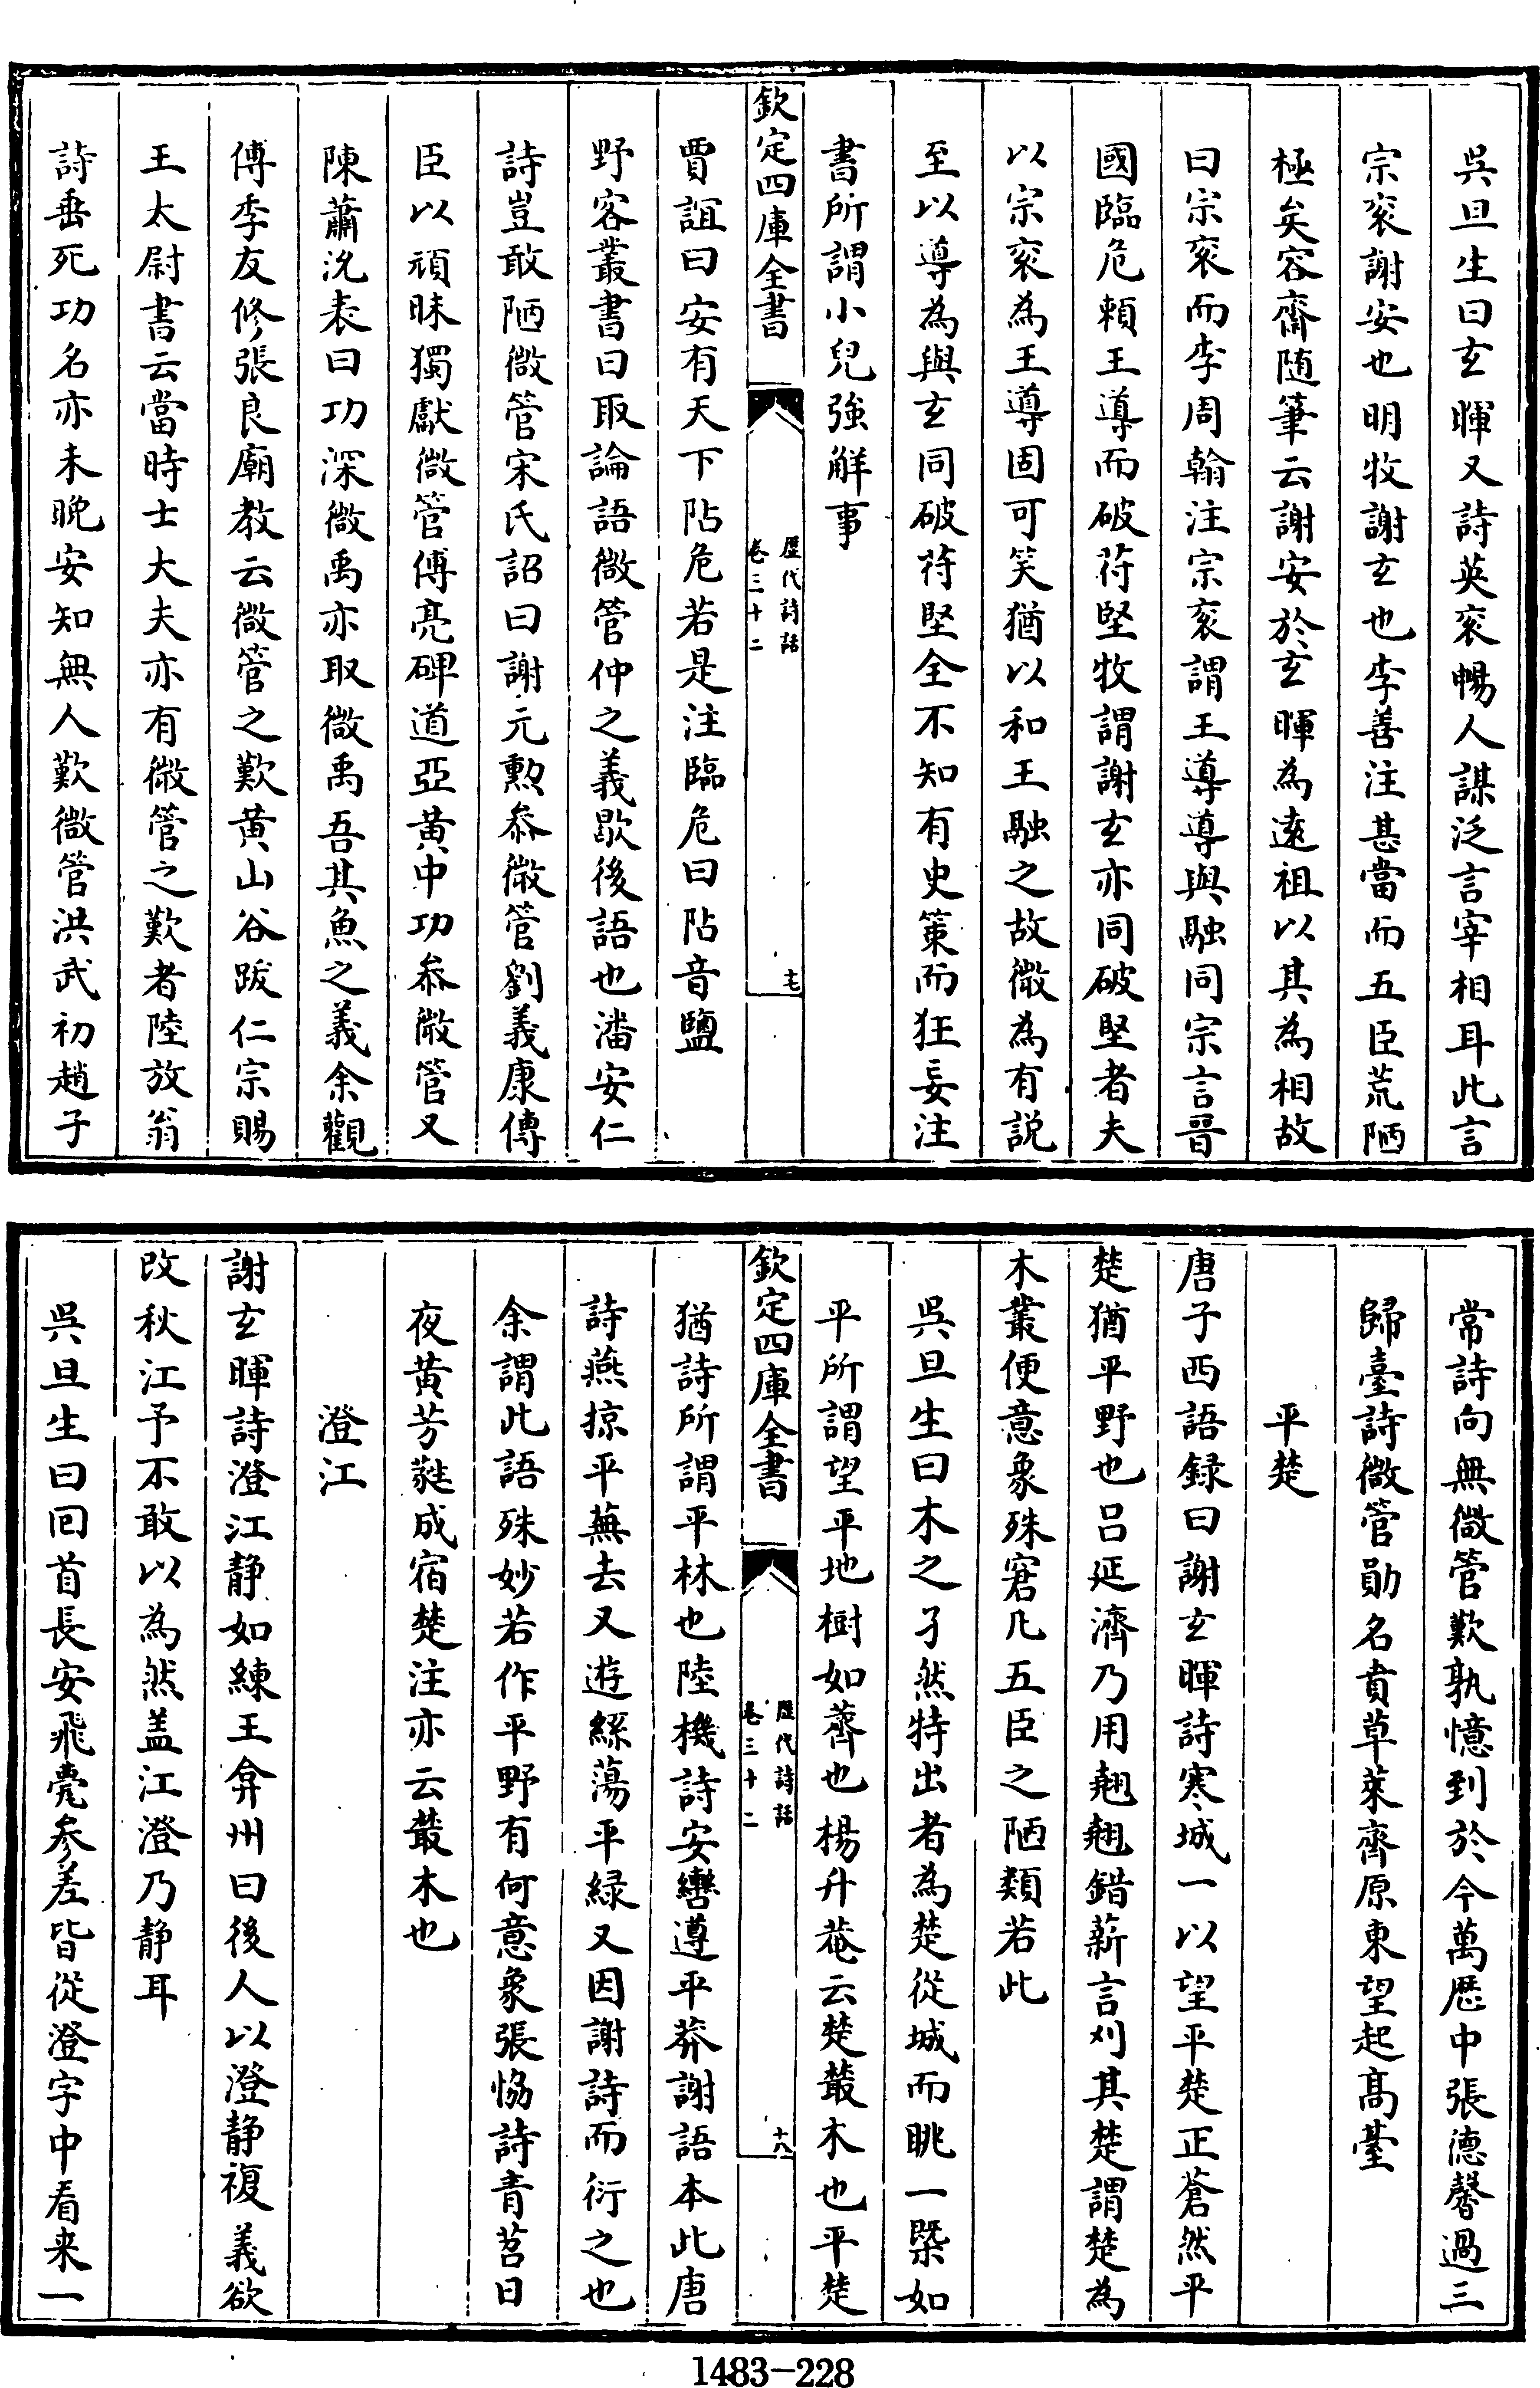 吳旦生曰玄暉又詩英衮暢人謀泛言宰相耳此言
宗衮謝安也明牧謝玄也李善注甚當而五臣荒陋
極矣容齋随筆云謝安於玄暉為遠祖以其為相故
曰宗衮而李周翰注宗衮謂王導導與融同宗言晉
國臨危賴王導而破苻堅牧謂謝玄亦同破堅者夫
以宗衮為王導固可笑猶以和王融之故微為有説
至以導為與玄同破苻堅全不知有史策而狂妄注
書所謂小兒強解事
欽定四庫全書
歴代詩話
卷三十二
十七
賈誼曰安有天下阽危若是注臨危曰阽音鹽
野客叢書曰取論語微管仲之義歇後語也潘安仁
詩豈敢陋微管宋氏詔曰謝元勲叅微管劉義康傳
臣以頑昧獨獻微管傅亮碑道亞黄中功叅微管又
陳蕭沇表曰功深微禹亦取微禹吾其魚之義余觀
傅季友修張良廟教云微管之歎黄山谷跋仁宗賜
王太尉書云當時士大夫亦有微管之歎者陸放翁
詩垂死功名亦未晚安知無人歎微管洪武初趙子
常詩向無微管歎孰憶到於今萬歴中張德馨過三
歸臺詩微管勛名賁草萊齊原東望起髙臺
平楚
唐子西語録曰謝玄暉詩寒城一以望平楚正蒼然平
楚猶平野也呂延濟乃用翹翹錯薪言刈其楚謂楚為
木叢便意象殊窘凡五臣之陋類若此
吳旦生曰木之孑然特出者為楚從城而眺一槩如
平所謂望平地樹如薺也楊升菴云楚叢木也平楚
欽定四庫全書
歴代詩話
卷三十二
十八
猶詩所謂平林也陸機詩安轡遵平莽謝語本此唐
詩燕掠平蕪去又遊絲蕩平緑又因謝詩而衍之也
余謂此語殊妙若作平野有何意象張恊詩青苕日
夜黄芳蕤成宿楚注亦云叢木也
澄江
謝玄暉詩澄江静如練王弇州曰後人以澄静複義欲
改秋江予不敢以為然盖江澄乃静耳
吳旦生曰囘首長安飛甍参差皆從澄字中看来一
1483-228